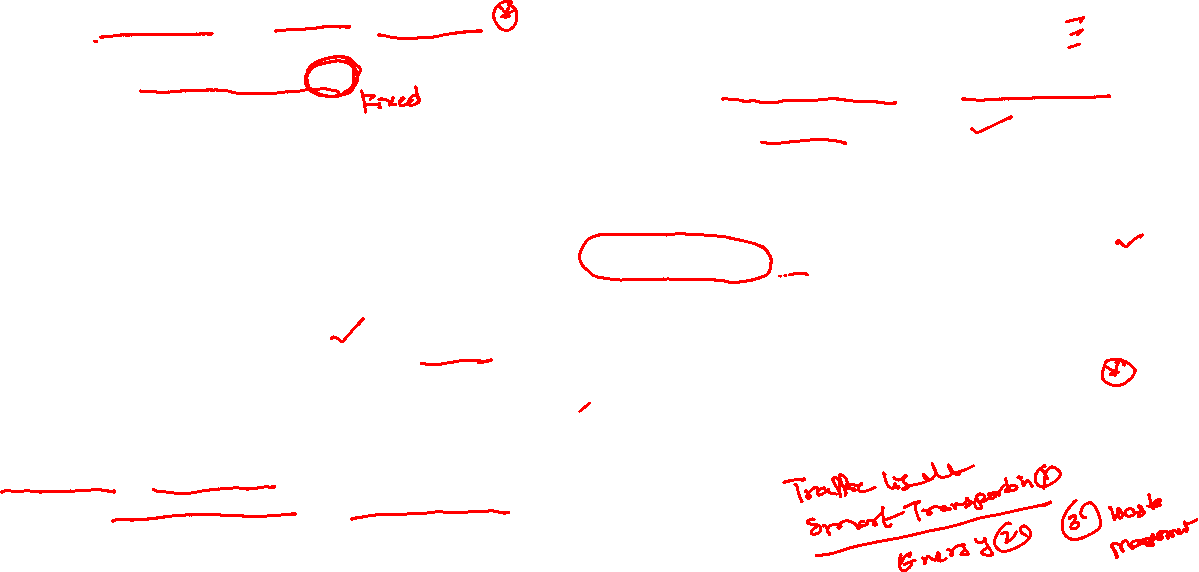 Fixed
Traffic lights
Smart Transportation ①
Energy ②
③ Waste
Management